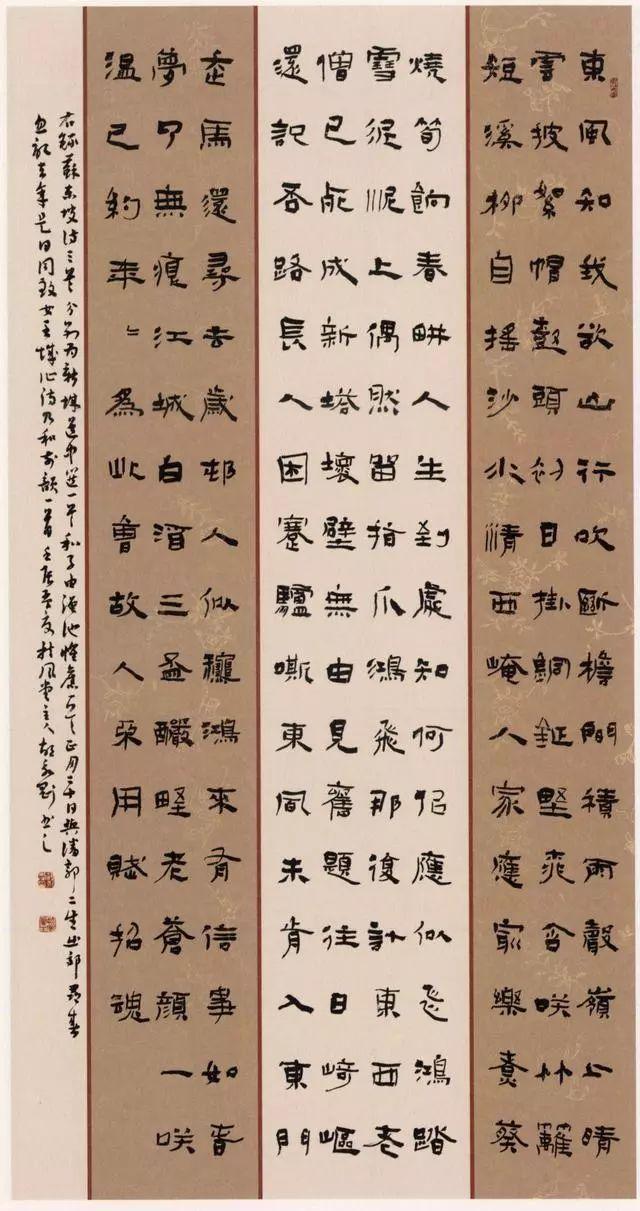 東風知我欲山行吹斷檐間積雨聲嶺上晴
雲披絮帽尌頭初日掛銅鉦野桃含咲竹籬
短溪柳自搖沙水清西崦人家應最樂煮葵
燒筍餉春畊人生到處知何佀應似飛鴻踏
雪泥泥上偶然留指爪鴻飛那復計東西老
僧已死成新塔壞壁無由見舊題往日崎嶇
還記否路長人困蹇驢嘶東風未肯入東門
走馬還尋去歲邨人似穐鴻來有信事如春
夢了無痕江城白酒三盃釅野老蒼顏一咲
溫已約年〻為此會故人不用賦招魂
右錄蘇東坡詩三首分別為新城道中選一首和子由澠池懷舊一首正月二十日與潘郭二生出郊尋春
忽記去年是日同至女王城作詩乃和前韻一首壬辰主人書之